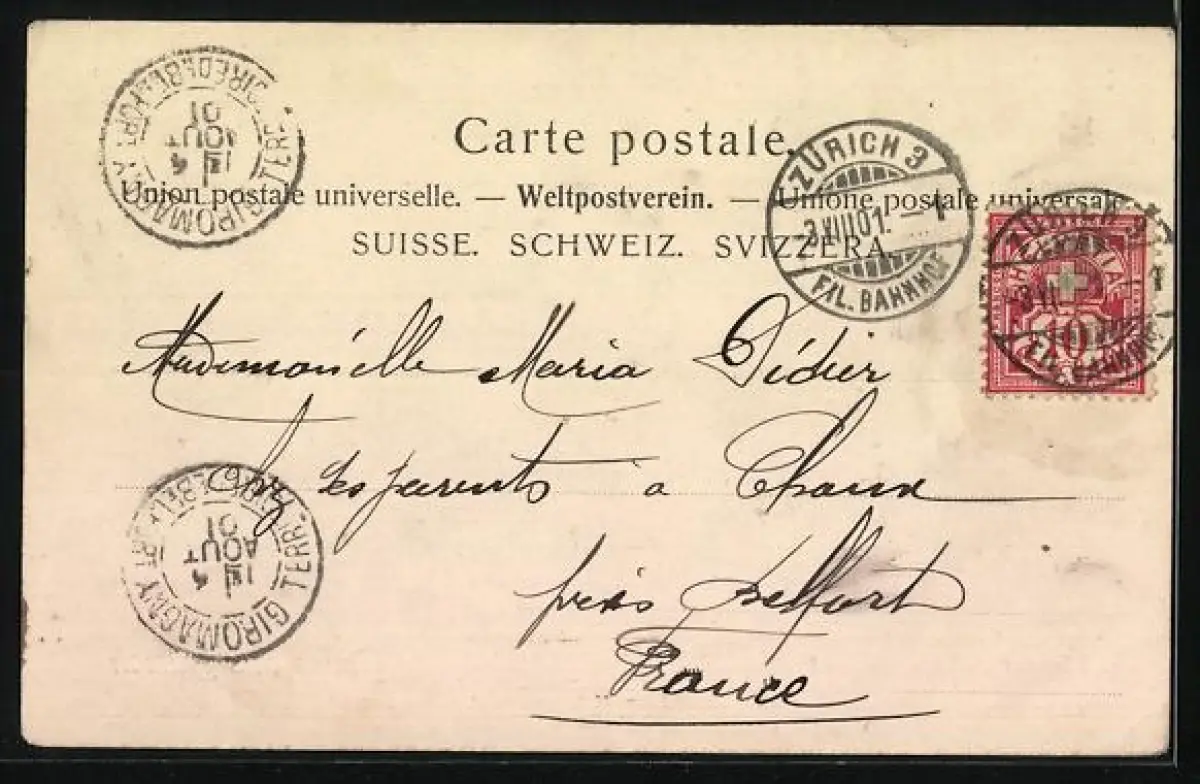 Carte postale.
Union postale universelle. — Weltpostverein. — Unione postale universale.
SUISSE. SCHWEIZ. SVIZZERA.
ZÜRICH 3
-3.VIII.01.-1
FIL. BAHNHOF
10
FIL. BAHNHOF
GIROMAGNY
4
AOUT
01
Mademoiselle Maria Didier
Chez ses parents à Chaux
près Belfort
France
GIROMAGNY TERR
4
AOUT
01